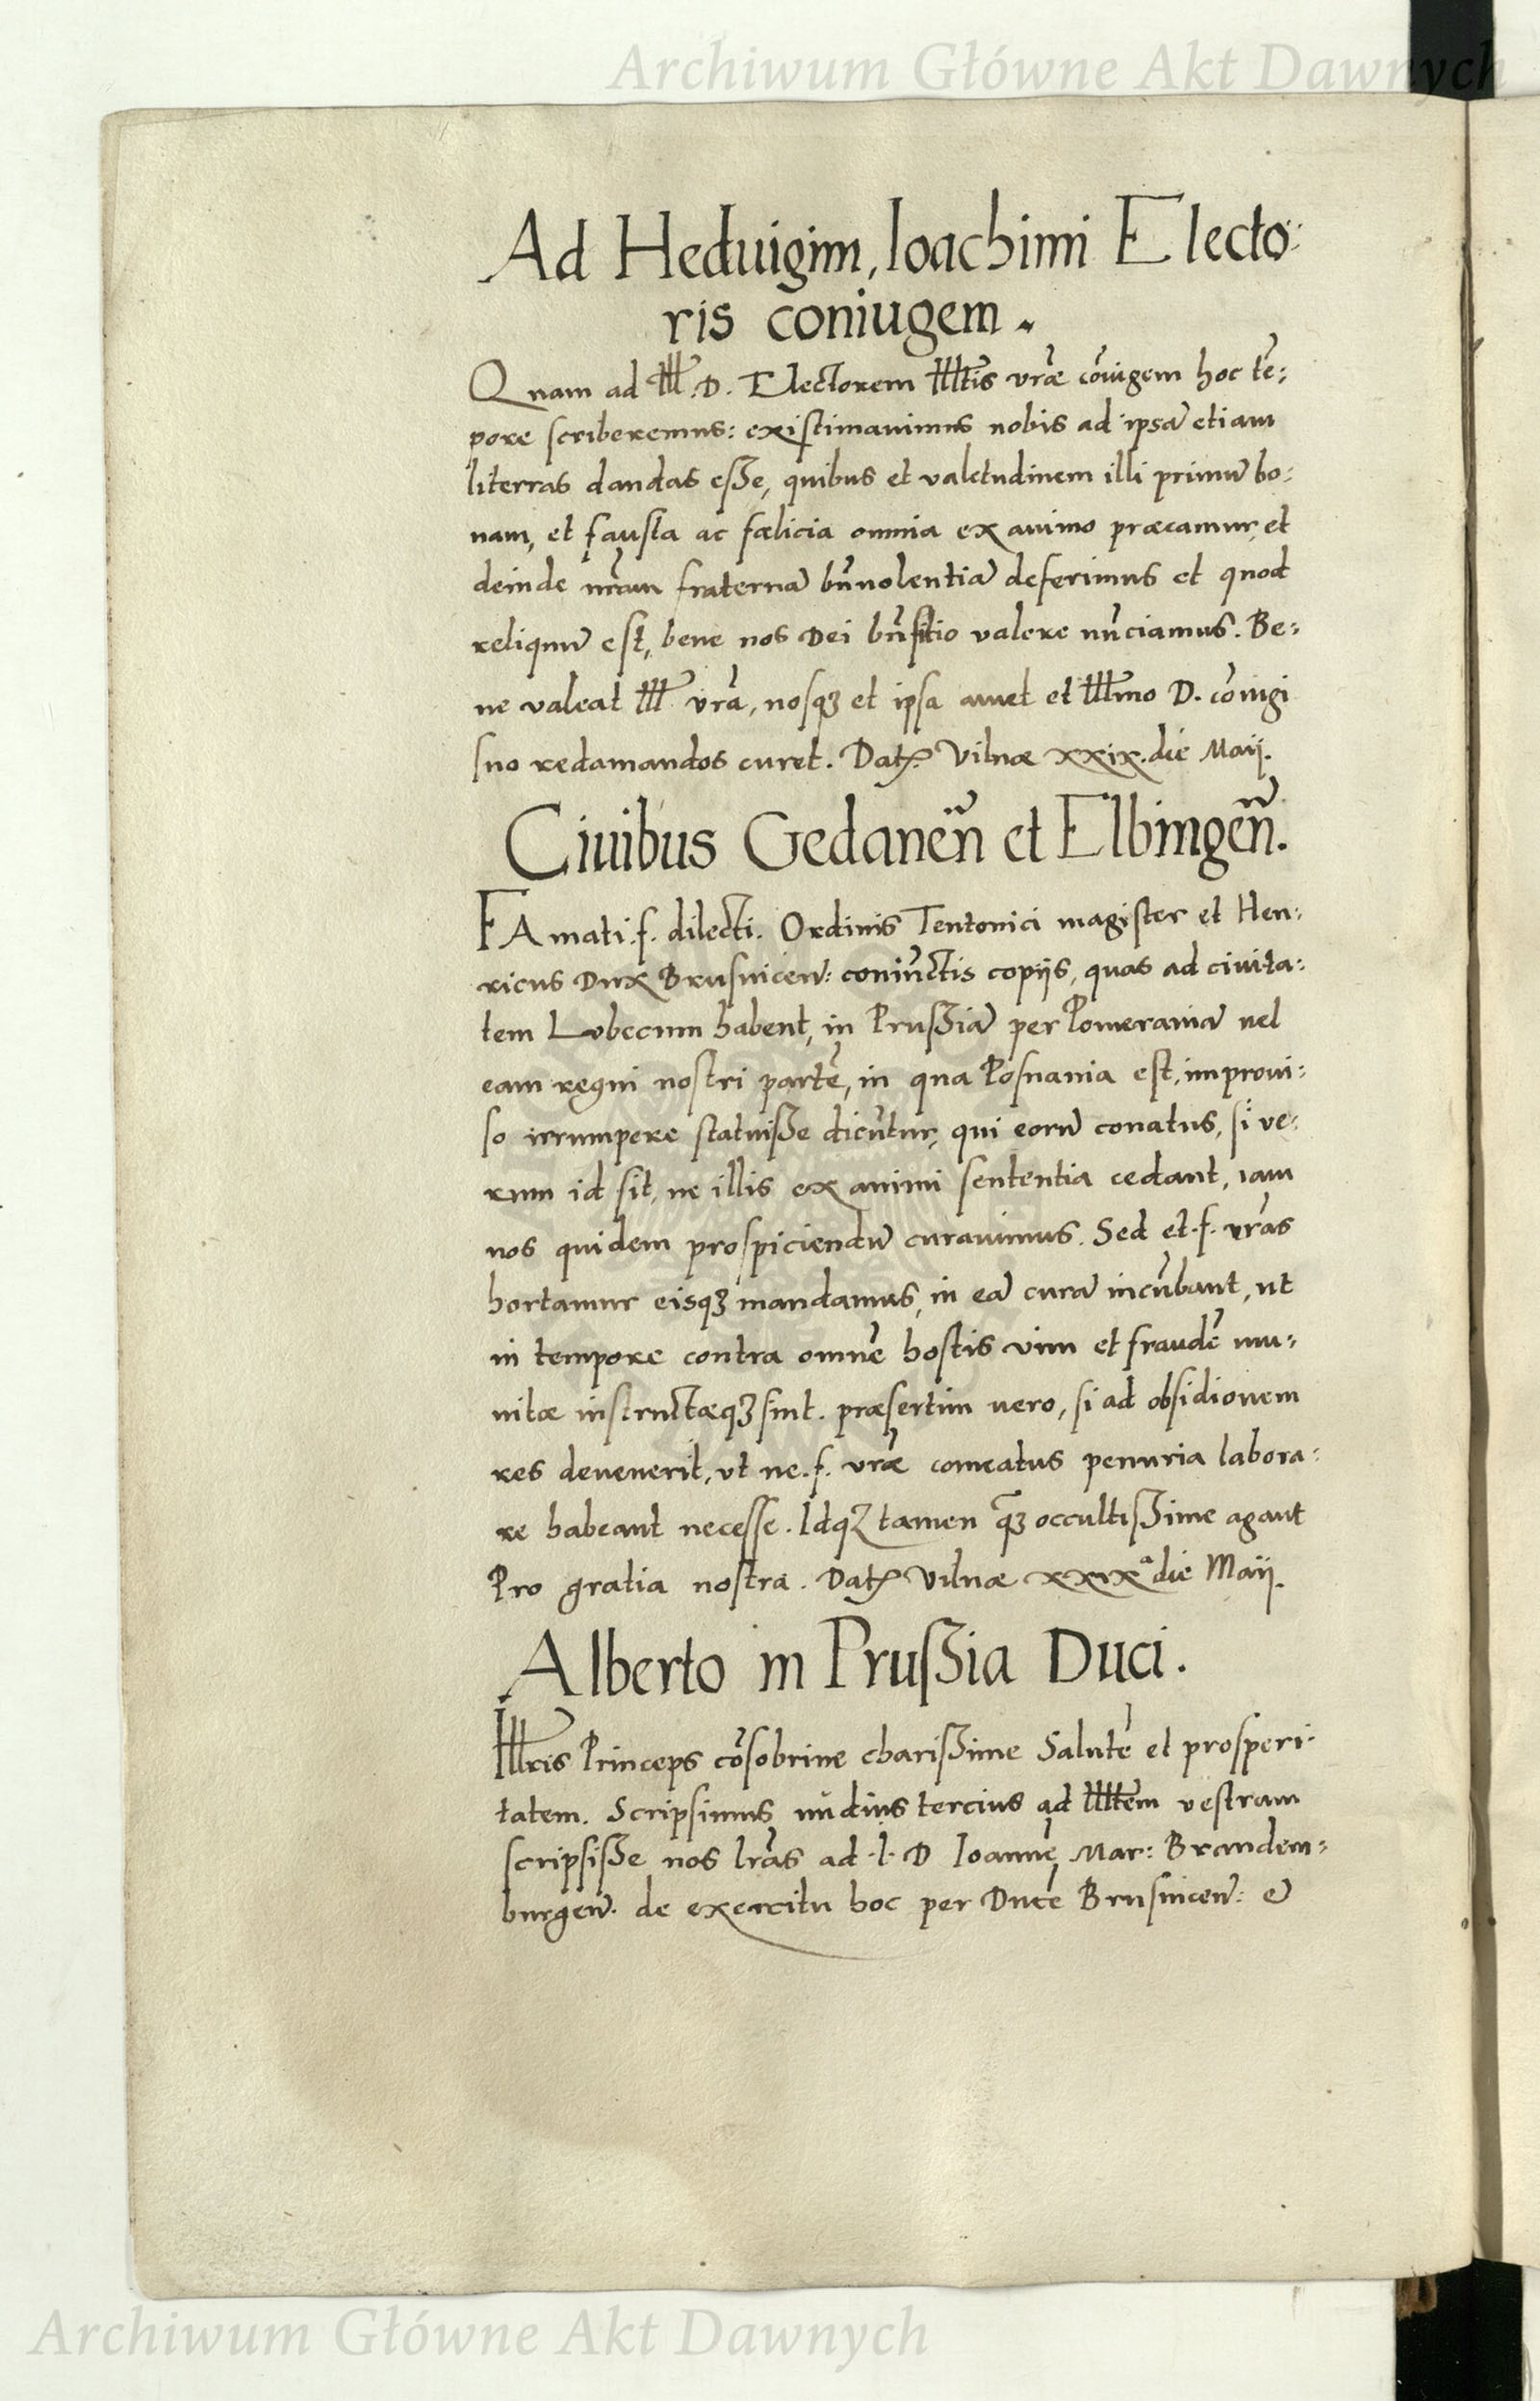 Archiwum Główne Akt Dawnych
Ad Heduigim, Ioachimi Electo:
ris coniugem.
Quum ad Illē .D. Electorem Illtis vrae cōiugem hoc tē:
pore scriberemus: existimauimus nobis ad ipsā etiam
literras dandas esse, quibus et valetudinem illi primū bo:
nam, et fausta ac fælicia omnia ex animo præcamur, et
deinde nr̄am fraternā bn̄uolentiā deferimus et quod
reliquū est, bene nos Dei bn̄fitio valere nūciamus. Be:
ne valeat Ill vrā, nosqꝫ et ipsa amet et Illmo D. cōiugi
suo redamandos curet. Datꝭ Vilnæ xxix. die Maij.
Ciuibus Gedaneñ et Elbingeñ.
FAmati .f. dilecti. Ordinis Teutonici magister et Hen:
ricus Dux Brusuicen: coniūctis copijs, quas ad ciuita:
tem Lubecum habent, in Prussiā per Pomeraniā uel
eam regni nostri partē, in qua Posnania est, improui:
so irrumpere statuisse dicūtur, qui eorū conatus, si ve:
rum id sit, ne illis ex animi sententia cedant, iam
nos quidem prospiciendū curauimus. Sed et .f. vrās
hortamur eisqꝫ mandamus, in eā curā incūbant, ut
in tempore contra omnē hostis vim et fraudē mu:
nitæ instructæqꝫ sint. præsertim uero, si ad obsidionem
res deuenerit, vt ne .f. vræ comeatus penuria labora:
re habeant necesse. Idqꝫ tamen q̄ꝫ occultissime agant
Pro gratia nostra. Datꝭ Vilnæ xxixª die Maij.
Alberto in Prussia Duci.
Illris Princeps cōsobrine charissime Salutē et prosperi:
tatem. Scripsimus nudius tercius ad Illtem vestram
scripsisse nos lrās ad .I. D Ioannē Mar: Brandem:
burgen. de exercitu hoc per Ducē Brusuicen: e
Archiwum Główne Akt Dawnych